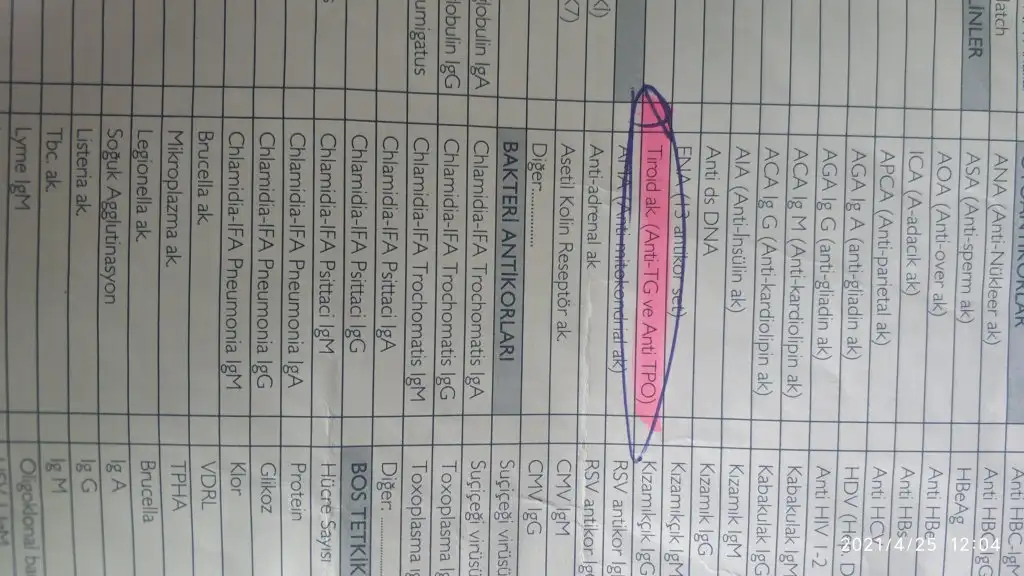 LİNLER
globulin IgA
lobulin IgG
umigatus
ANA (Anti-Nükleer ak)
ASA (Anti-sperm ak)
AOA (Anti-over ak)
ICA (A-adacık ak)
APCA (Anti-parietal ak)
AGA Ig A (anti-gliadin ak)
AGA Ig G (anti-gliadin ak)
ACA Ig M (Anti-kardiolipin ak)
ACA Ig G (Anti-kardiolipin ak)
AIA (Anti-İnsülin ak)
Anti ds DNA
ENA (13 antikor set)
Tiroid ak. (Anti-TG ve Anti TPO)
AMA (Anti-mitokondrial ak)
Anti-adrenal ak
Asetil Kolin Reseptör ak.
Diğer..............
BAKTERİ ANTİKORLARI
Chlamidia-IFA Trochomatis IgA
Chlamidia-IFA Trochomatis IgG
Chlamidia-IFA Trochomatis IgM
Chlamidia-IFA Psittaci IgA
Chlamidia-IFA Psittaci IgG
Chlamidia-IFA Psittaci IgM
Chlamidia-IFA Pneumonia IgA
Chlamidia-IFA Pneumonia IgG
Chlamidia-IFA Pneumonia IgM
Brucella ak.
Mikroplazma ak.
Legionella ak.
Soğuk Agglutinasyon
Listeria ak.
Tbc. ak.
Lyme IgM
Anti HBC-IgM
Anti HBC-IgG
HBeAg
Anti HBe
Anti HBs
Anti HCV
HDV (H. D
Anti HIV 1-2
Kabakulak IgM
Kabakulak IgG
Kızamık IgM
Kızamık IgG
Kızamıkçık IgM
Kızamıkçık IgG
RSV antikor Ig
RSV antikor Ig
CMV IgM
CMV IgG
Suçiçeği virüsü
Suçiçeği virüsü
Toxoplasma I
Toxoplasma I
Diğer...........
BOS TETKİK
Hücre Sayısı
Protein
Glikoz
Klor
VDRL
TPHA
Brucella
Ig A
Ig G
Ig M
Oligoklonal ba
2021/4/25 12:04